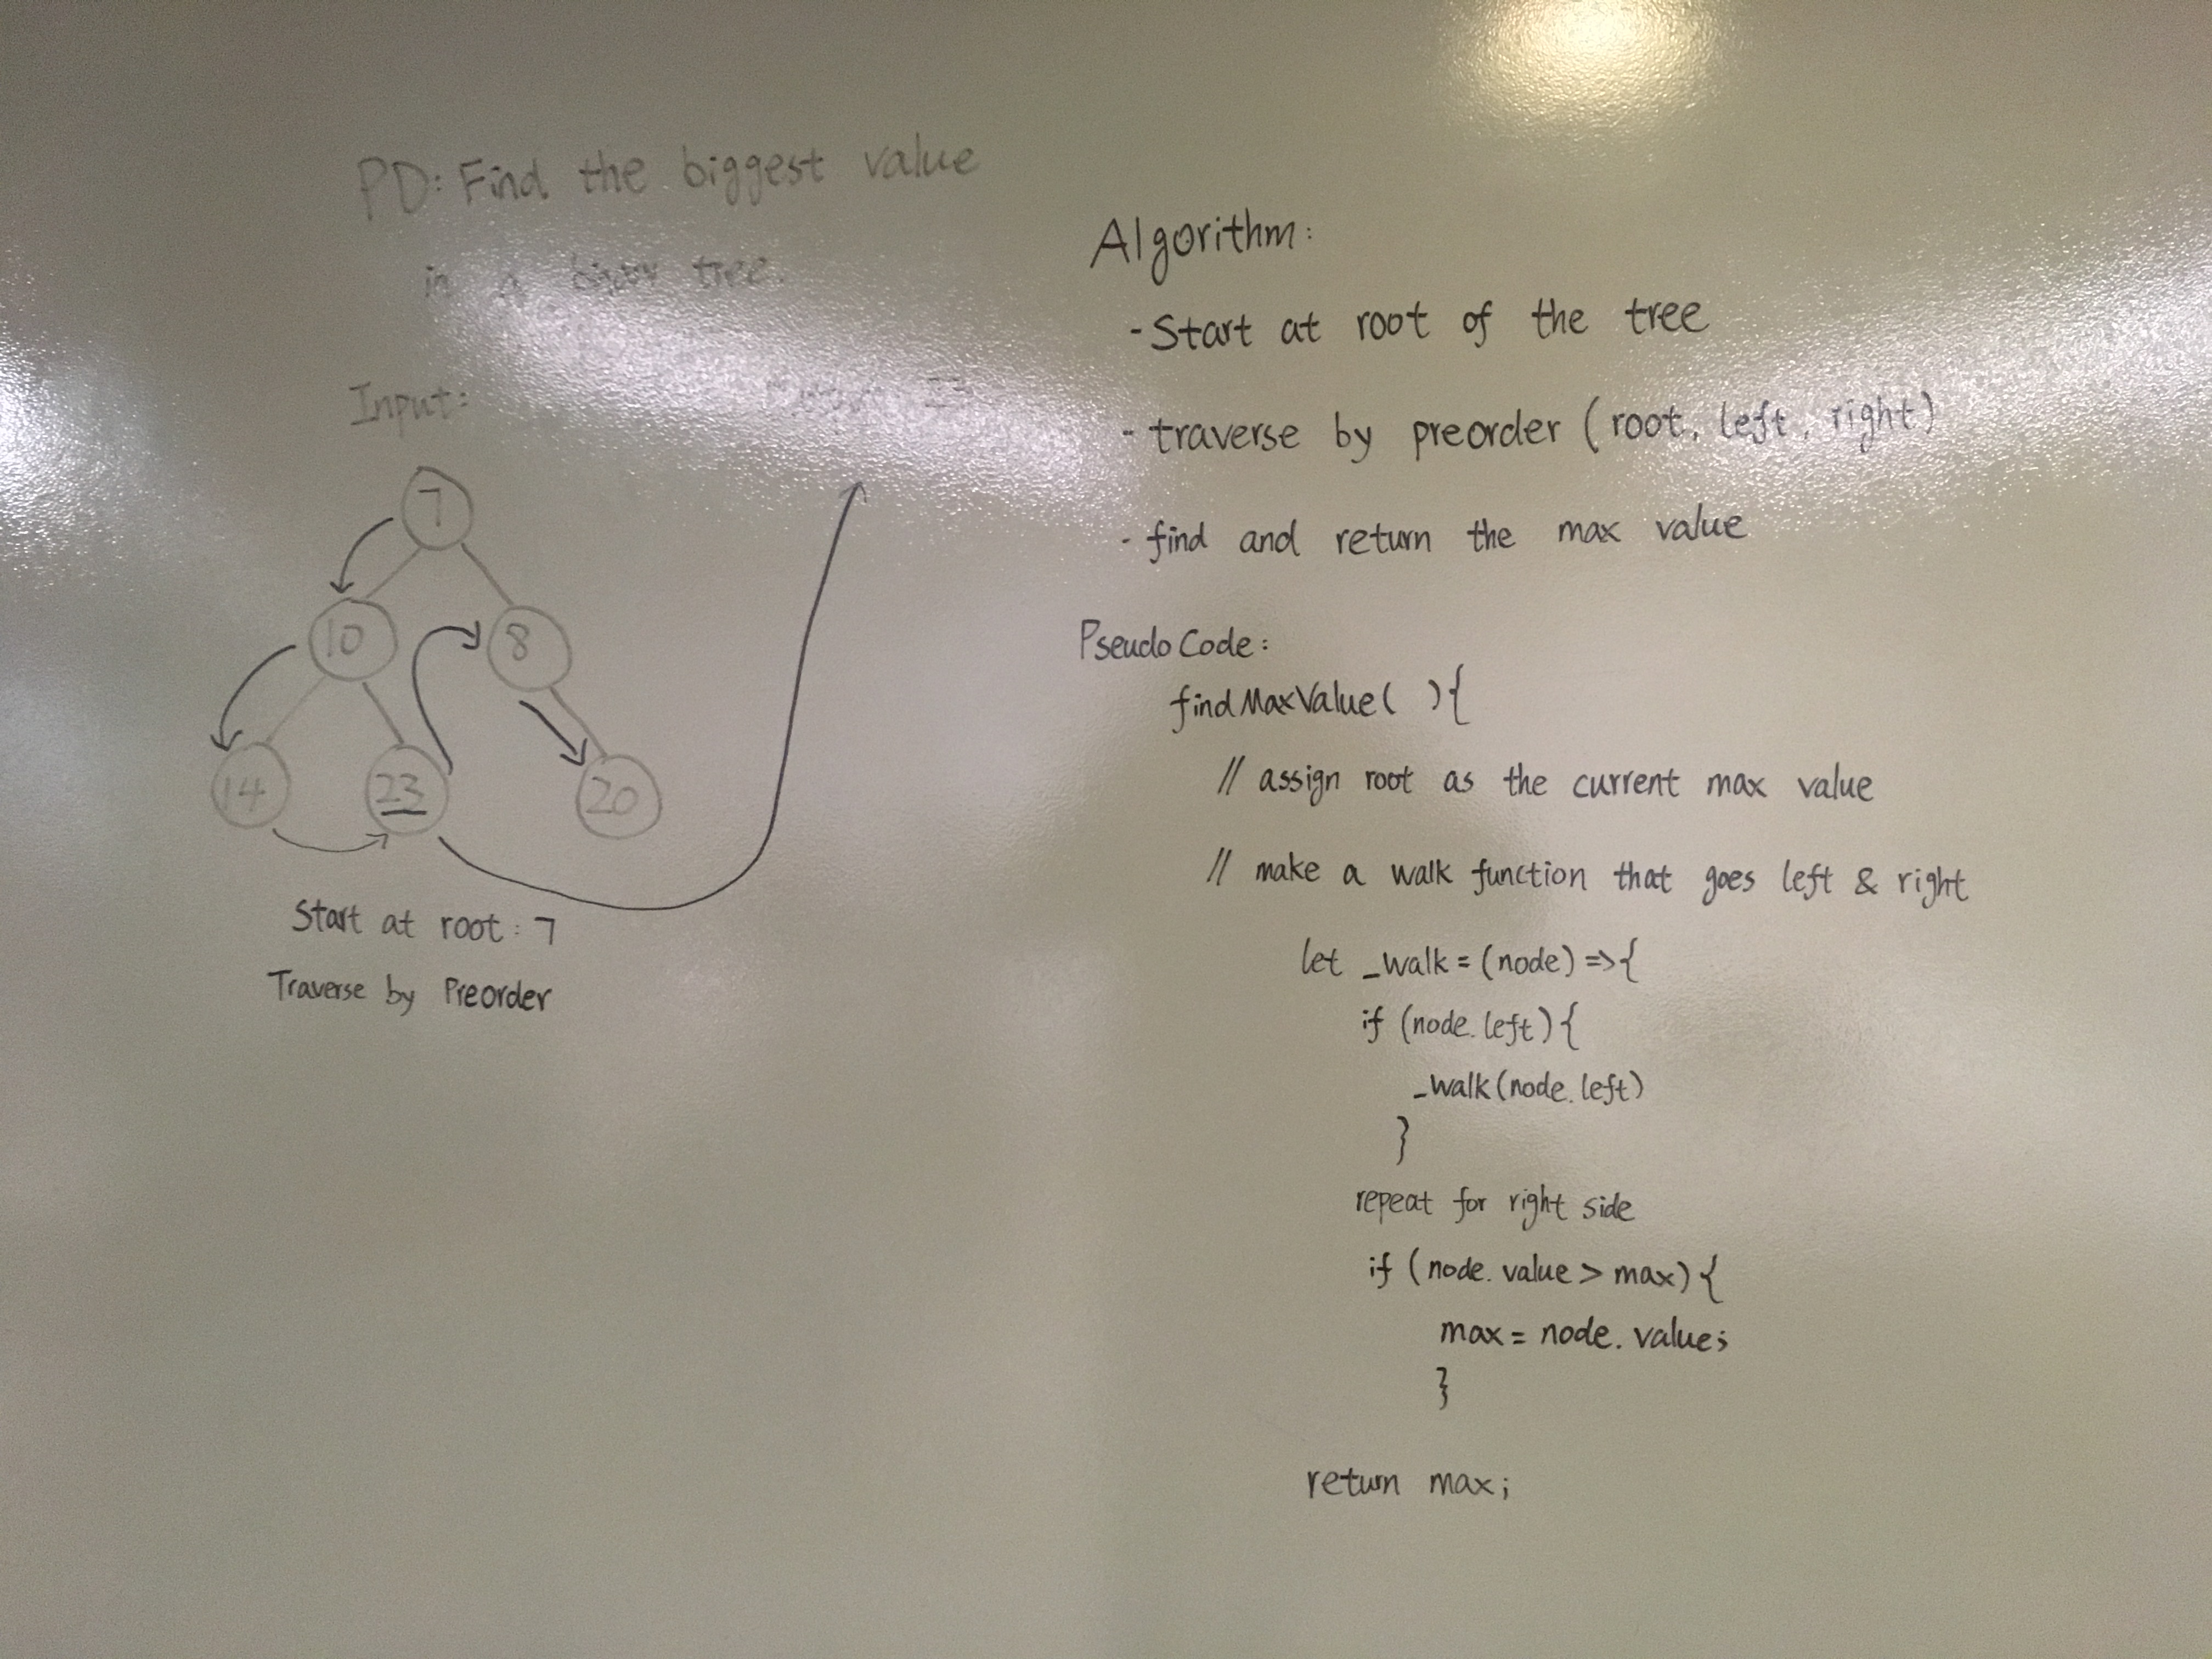 PD: Find the biggest value
in a tree.
Input:
7
10
8
14
23
20
Start at root: 7
Traverse by Preorder
Algorithm:
- Start at root of the tree
- traverse by preorder (root, left, right)
- find and return the max value
Pseudo Code:
findMaxValue( ){
// assign root as the current max value
// make a walk function that goes left & right
let _walk = (node) => {
if (node.left) {
_walk(node.left)
}
repeat for right side
if (node.value > max) {
max = node.value;
}
return max;